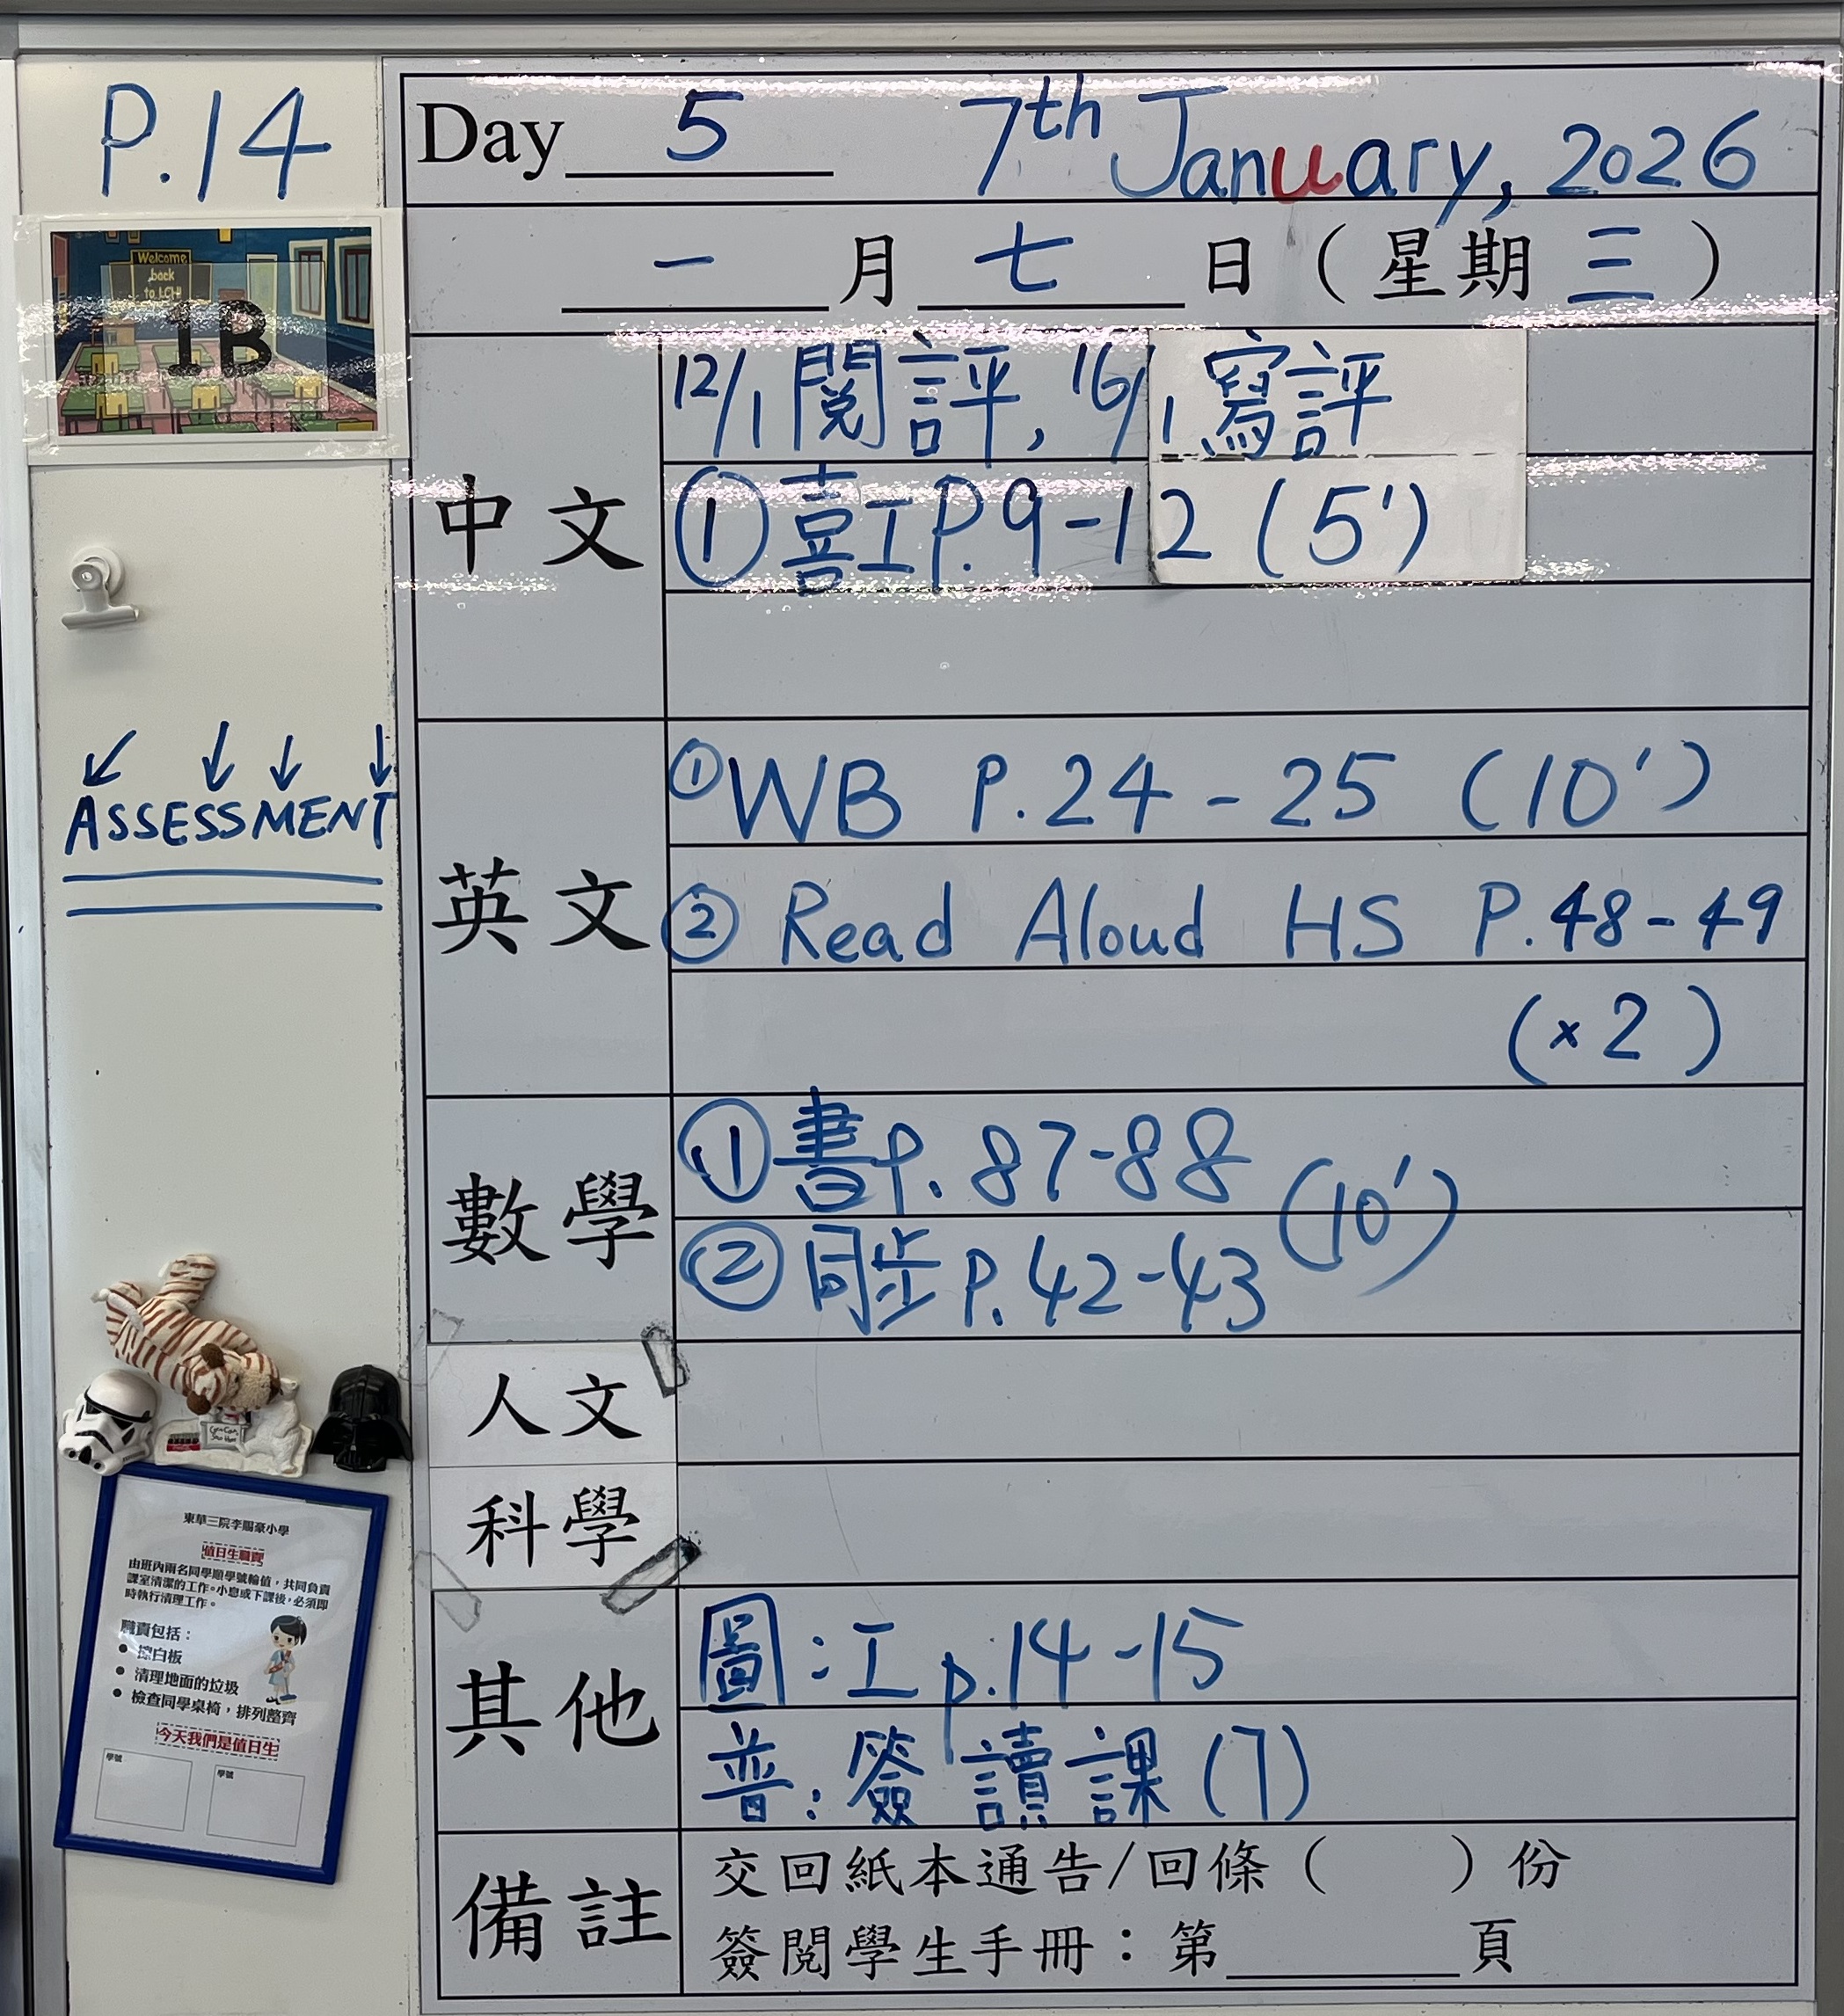 P.14
Day 5 7th January, 2026
一 月 七 日 ( 星期 三 )
Welcome
back
to LCH
1B
中文
12/1 閱評, 16/1 寫評
① 喜工 P.9-12 (5')
ASSESSMENT
英文
① WB P.24-25 (10')
② Read Aloud HS P.48-49
(×2)
數學
① 書P.87-88
② 同步P.42-43
(10')
人文
科學
其他
圖:工p.14-15
普:簽讀課(7)
備註
交回紙本通告/回條( )份
簽閱學生手冊:第 頁
東華三院李賜豪小學
值日生職責
由班內兩名同學順學號輪值,共同負責
課室清潔的工作。小息或下課後,必須即
時執行清理工作。
職責包括:
• 擦白板
• 清理地面的垃圾
• 檢查同學桌椅,排列整齊
今天我們是值日生
學號 學號